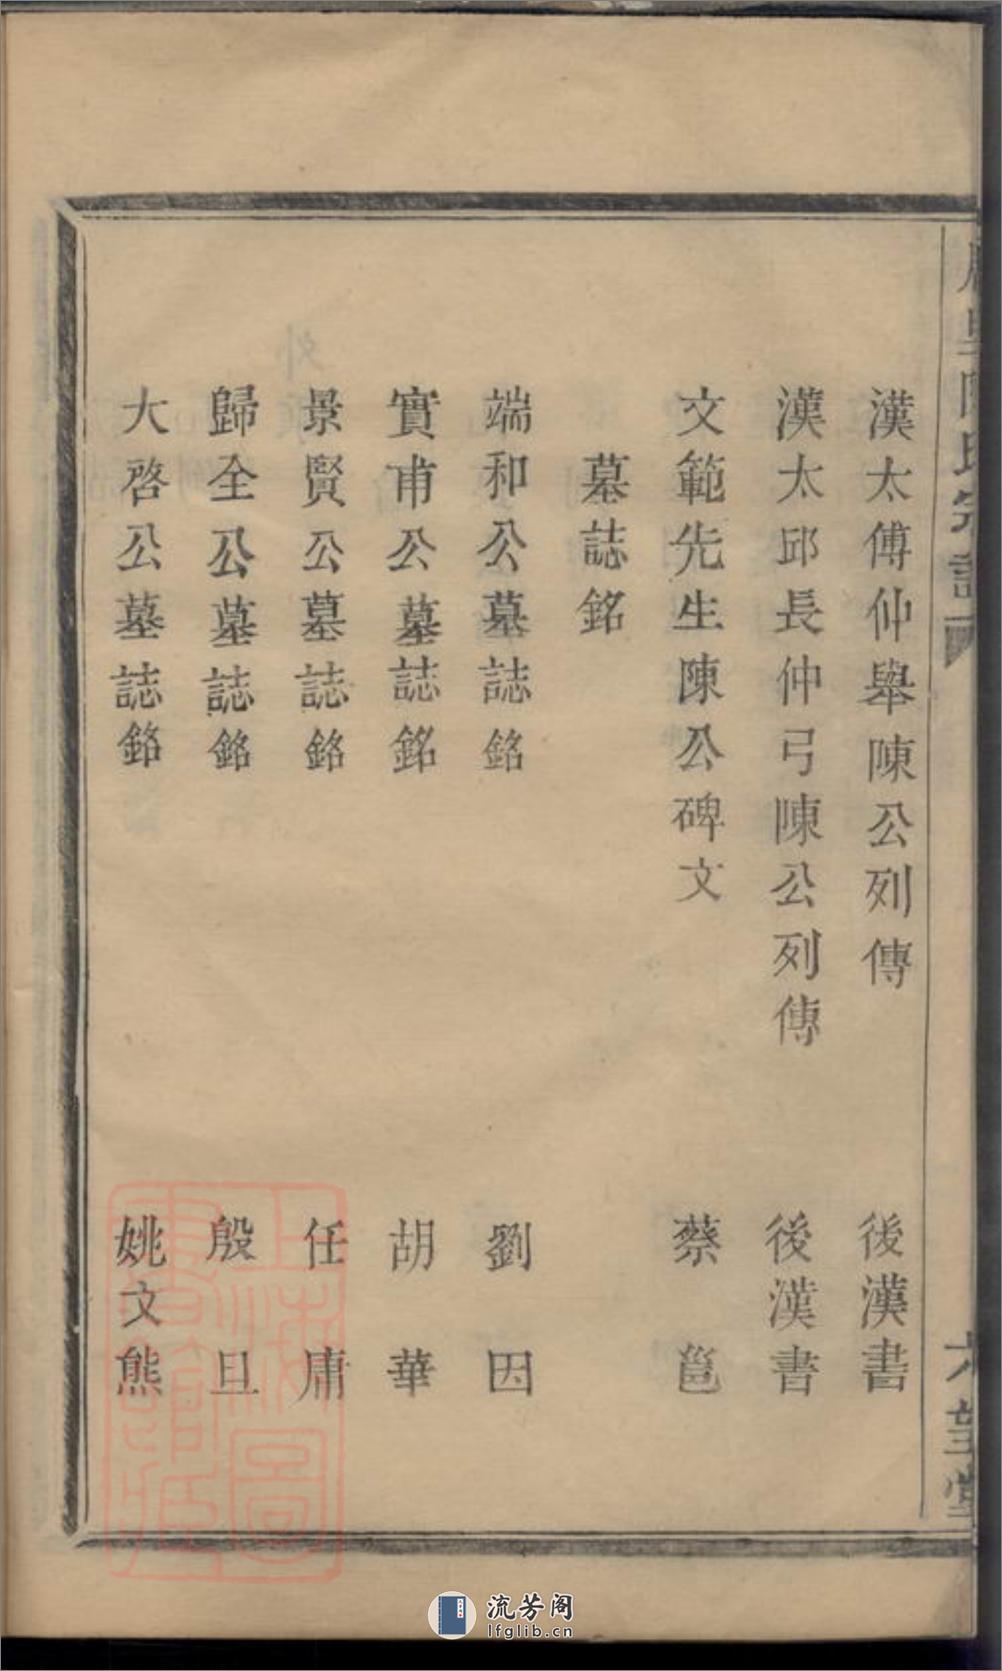 陳氏宗譜
漢太傅仲舉陳公列傳 後漢書
漢太邱長仲弓陳公列傳 後漢書
文範先生陳公碑文 蔡邕
墓誌銘
端和公墓誌銘 劉因
實甫公墓誌銘 胡華
景賢公墓誌銘 任庸
歸全公墓誌銘 殷旦
大啓公墓誌銘 姚文熊
上海圖書館藏
流芳阁
lfglib.cn